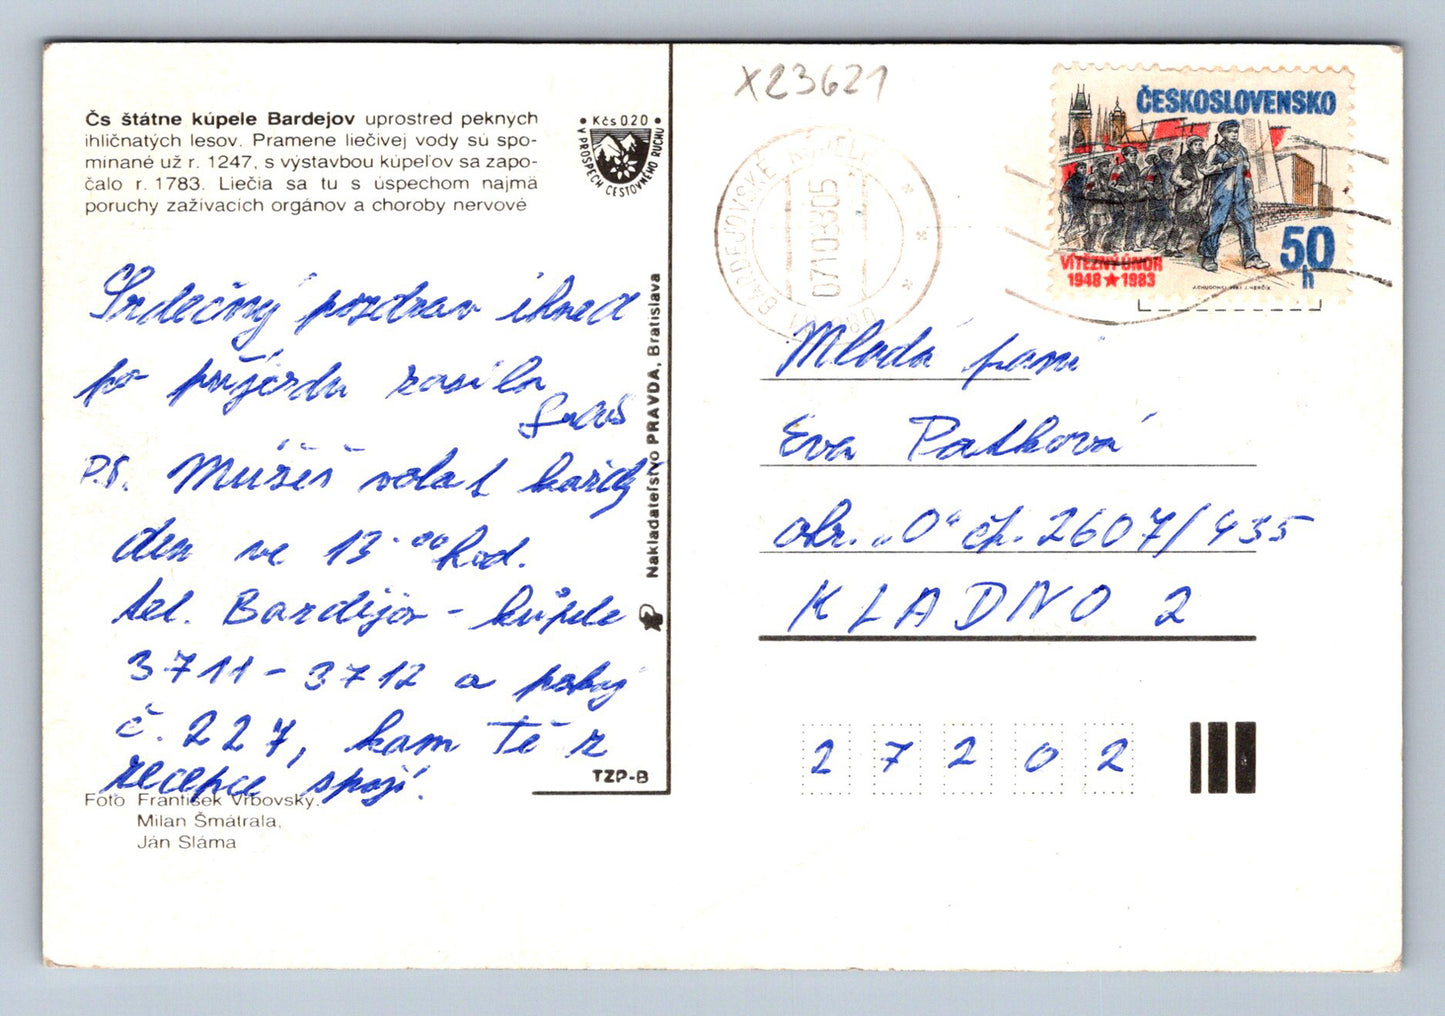 Čs štátne kúpele Bardejov uprostred peknych
ihličnatých lesov. Pramene liečivej vody sú spo-
mínané už r. 1247, s výstavbou kúpeľov sa zapo-
čalo r. 1783. Liečia sa tu s úspechom najmä
poruchy zažívacích orgánov a choroby nervové
• Kčs 0 20 •
V PROSPECH CESTOVNÉHO RUCHU
Srdečný pozdrav ihned
po příjezdu zasílá
P.S. Můžeš volat každý
den ve 13.00 hod.
tel. Bardějov - kúpele
3711 - 3712 a pokoj
č. 227, kam Tě z
recepce spojí.
Foto František Vrbovský,
Milan Šmátrala,
Ján Sláma
Nakladateľstvo PRAVDA, Bratislava
TZP-B
X23621
BARDEJOVSKÉ KÚPELE
ČESKOSLOVENSKO
VÍTĚZNÝ ÚNOR
1948 ★ 1983
50
h
Mladá paní
Eva Patková
obr. „O" čp. 2607/435
KLADNO 2
2 7 2 0 2